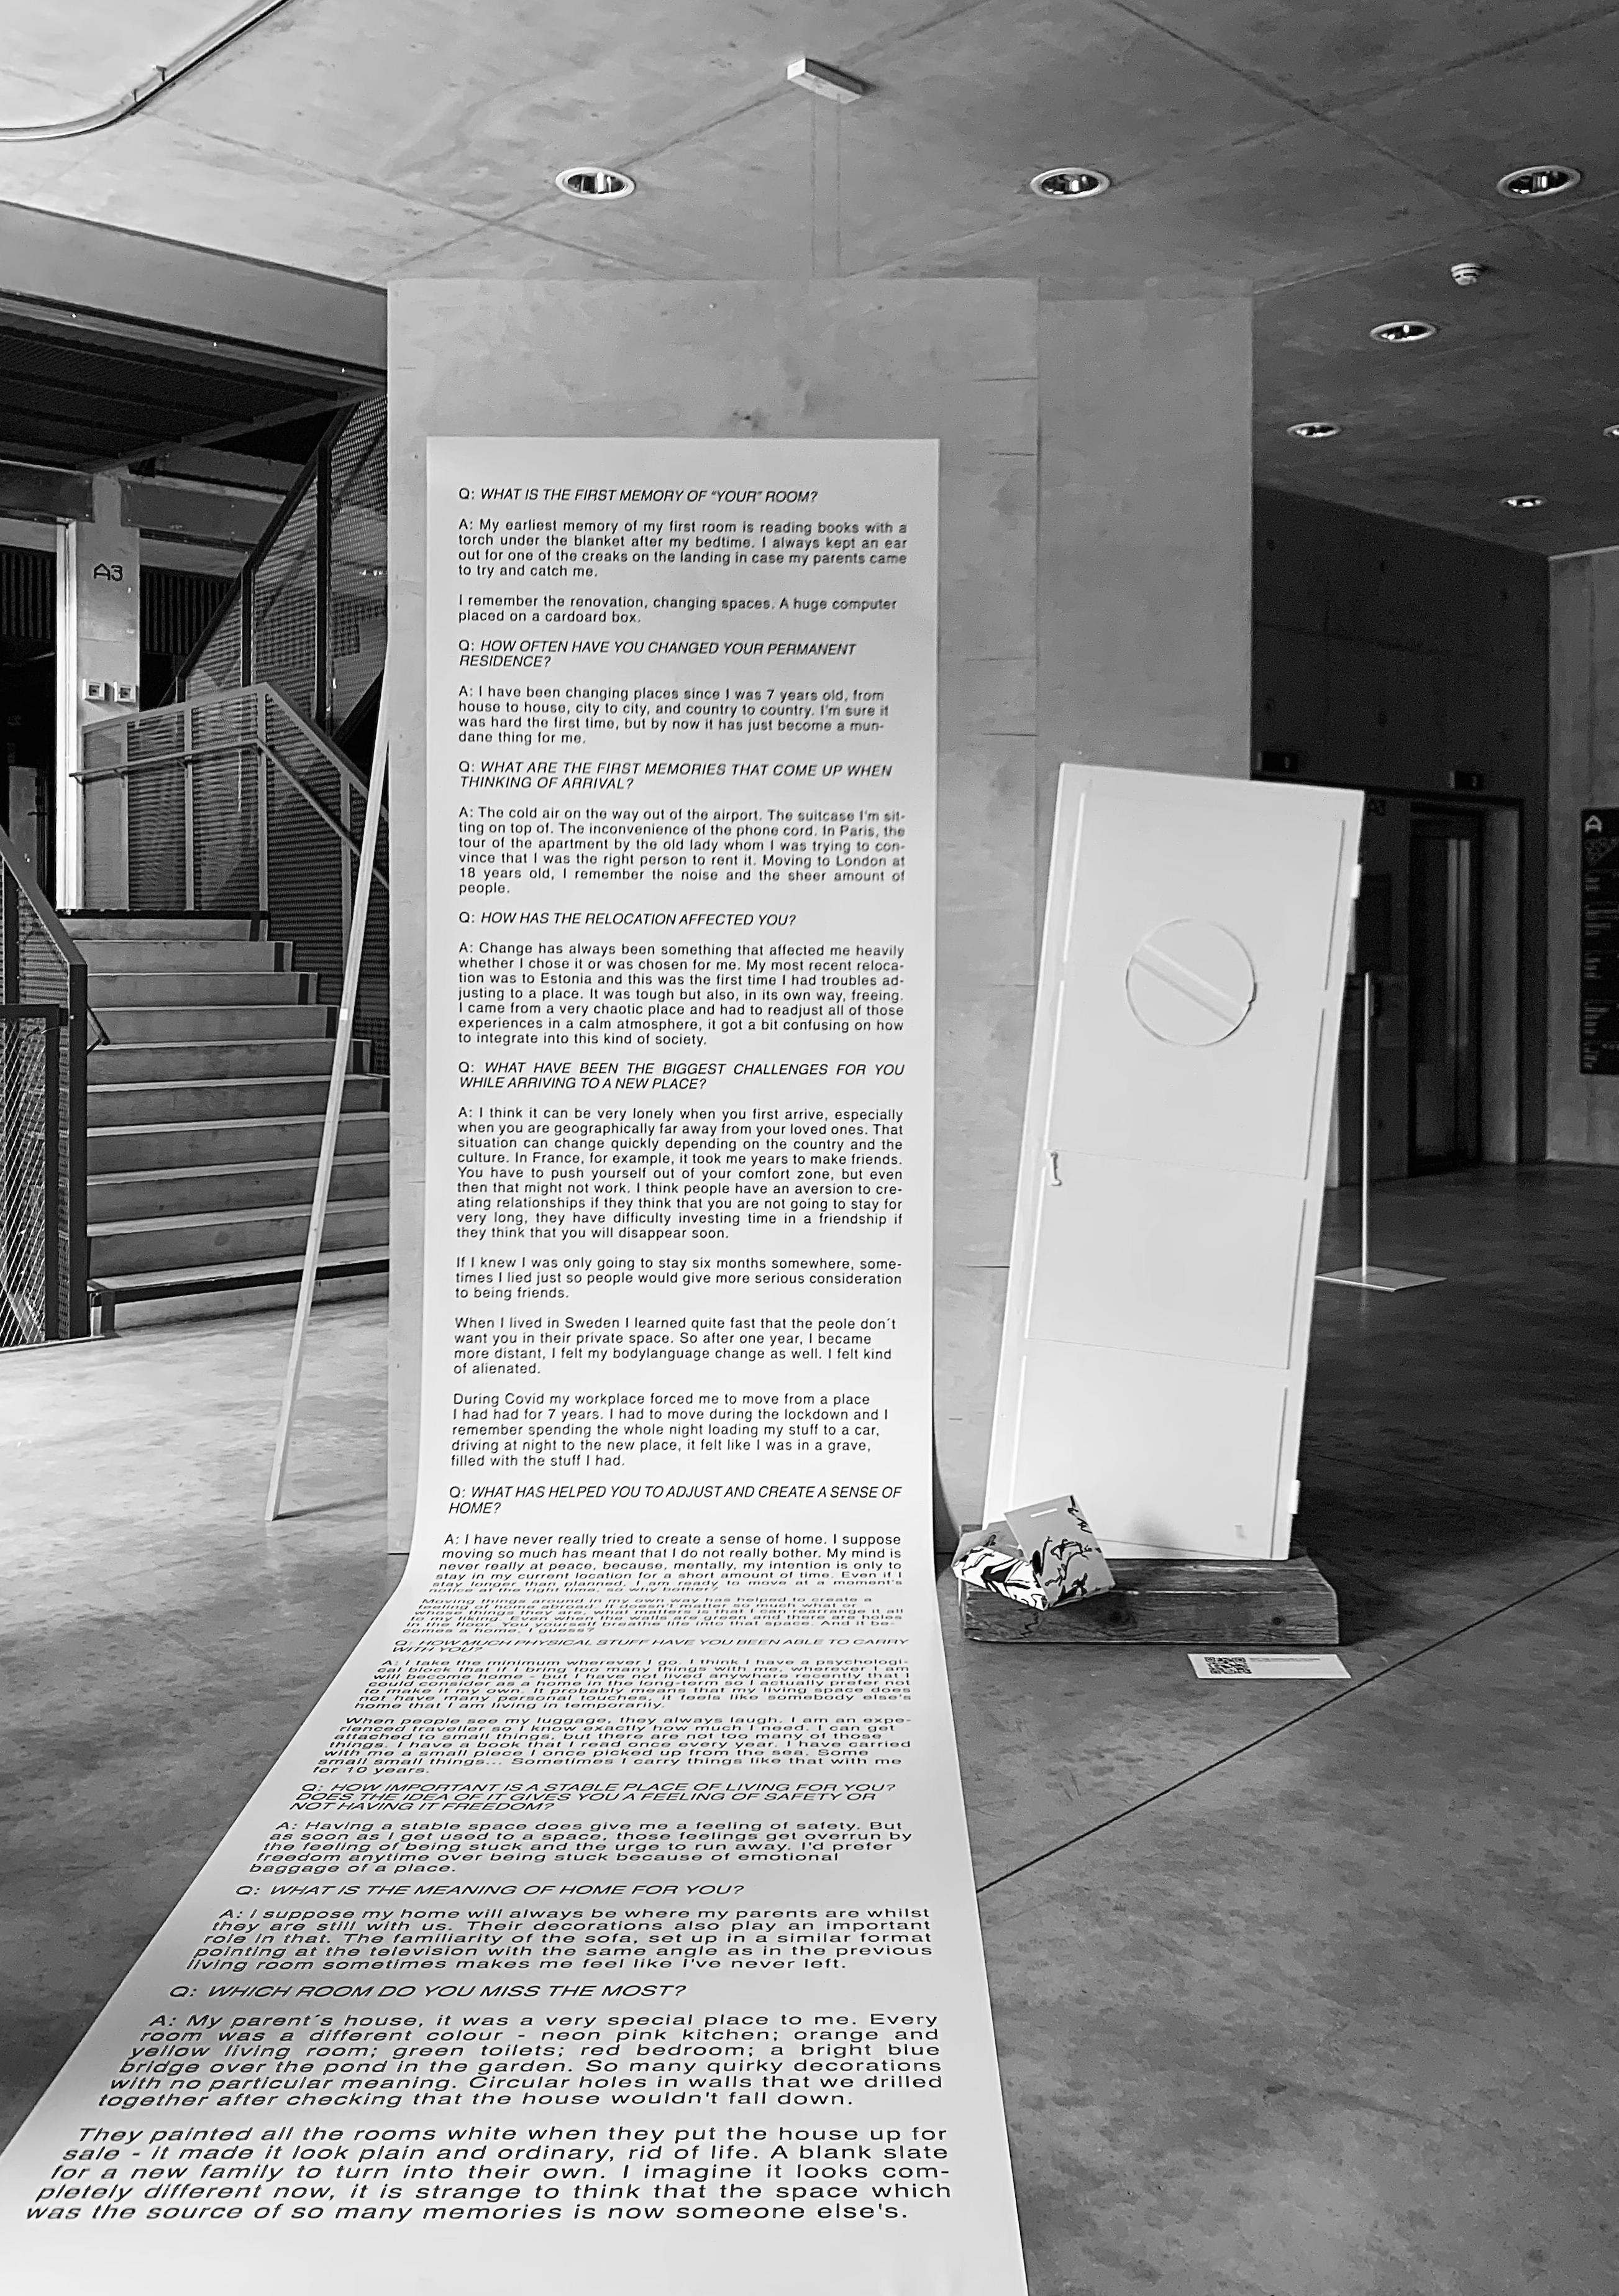 A3
Q: WHAT IS THE FIRST MEMORY OF "YOUR" ROOM?
A: My earliest memory of my first room is reading books with a
torch under the blanket after my bedtime. I always kept an ear
out for one of the creaks on the landing in case my parents came
to try and catch me.
I remember the renovation, changing spaces. A huge computer
placed on a cardoard box.
Q: HOW OFTEN HAVE YOU CHANGED YOUR PERMANENT
RESIDENCE?
A: I have been changing places since I was 7 years old, from
house to house, city to city, and country to country. I'm sure it
was hard the first time, but by now it has just become a mun-
dane thing for me.
Q: WHAT ARE THE FIRST MEMORIES THAT COME UP WHEN
THINKING OF ARRIVAL?
A: The cold air on the way out of the airport. The suitcase I'm sit-
ting on top of. The inconvenience of the phone cord. In Paris, the
tour of the apartment by the old lady whom I was trying to con-
vince that I was the right person to rent it. Moving to London at
18 years old, I remember the noise and the sheer amount of
people.
Q: HOW HAS THE RELOCATION AFFECTED YOU?
A: Change has always been something that affected me heavily
whether I chose it or was chosen for me. My most recent reloca-
tion was to Estonia and this was the first time I had troubles ad-
justing to a place. It was tough but also, in its own way, freeing.
I came from a very chaotic place and had to readjust all of those
experiences in a calm atmosphere, it got a bit confusing on how
to integrate into this kind of society.
Q: WHAT HAVE BEEN THE BIGGEST CHALLENGES FOR YOU
WHILE ARRIVING TO A NEW PLACE?
A: I think it can be very lonely when you first arrive, especially
when you are geographically far away from your loved ones. That
situation can change quickly depending on the country and the
culture. In France, for example, it took me years to make friends.
You have to push yourself out of your comfort zone, but even
then that might not work. I think people have an aversion to cre-
ating relationships if they think that you are not going to stay for
very long, they have difficulty investing time in a friendship if
they think that you will disappear soon.
If I knew I was only going to stay six months somewhere, some-
times I lied just so people would give more serious consideration
to being friends.
When I lived in Sweden I learned quite fast that the peole don´t
want you in their private space. So after one year, I became
more distant, I felt my bodylanguage change as well. I felt kind
of alienated.
During Covid my workplace forced me to move from a place
I had had for 7 years. I had to move during the lockdown and I
remember spending the whole night loading my stuff to a car,
driving at night to the new place, it felt like I was in a grave,
filled with the stuff I had.
Q: WHAT HAS HELPED YOU TO ADJUST AND CREATE A SENSE OF
HOME?
A: I have never really tried to create a sense of home. I suppose
moving so much has meant that I do not really bother. My mind is
never really at peace, because, mentally, my intention is only to
stay in my current location for a short amount of time. Even if I
stay longer than planned, I am ready to move at a moment's
notice at the right time, so why bother?
Moving things around in my own way has helped to create a
home. It doesn't matter so much what or
whose things they are, what matters is that I can rearrange it all
to my liking. Even when the walls are green and there are holes
in the floor. You yourself breathe life into that space. And it be-
comes a home, I guess?
Q: HOW MUCH PHYSICAL STUFF HAVE YOU BEEN ABLE TO CARRY
WITH YOU?
A: I take the minimum wherever I go. I think I have a psychologi-
cal block that if I bring too many things with me, wherever I am
will become home - but I have not lived anywhere recently that I
could consider as a home in the long-term so I actually prefer not
to make it my own. It probably means that my living space does
not have many personal touches, it feels like somebody else's
home that I am living in temporarily.
When people see my luggage, they always laugh. I am an expe-
rienced traveller so I know exactly how much I need. I can get
attached to small things, but there are not too many of those
things. I have a book that I read once every year. I have carried
with me a small piece I once picked up from the sea. Some
small small things... Sometimes I carry things like that with me
for 10 years.
Q: HOW IMPORTANT IS A STABLE PLACE OF LIVING FOR YOU?
DOES THE IDEA OF IT GIVES YOU A FEELING OF SAFETY OR
NOT HAVING IT FREEDOM?
A: Having a stable space does give me a feeling of safety. But
as soon as I get used to a space, those feelings get overrun by
the feeling of being stuck and the urge to run away. I'd prefer
freedom anytime over being stuck because of emotional
baggage of a place.
Q: WHAT IS THE MEANING OF HOME FOR YOU?
A: I suppose my home will always be where my parents are whilst
they are still with us. Their decorations also play an important
role in that. The familiarity of the sofa, set up in a similar format
pointing at the television with the same angle as in the previous
living room sometimes makes me feel like I've never left.
Q: WHICH ROOM DO YOU MISS THE MOST?
A: My parent´s house, it was a very special place to me. Every
room was a different colour - neon pink kitchen; orange and
yellow living room; green toilets; red bedroom; a bright blue
bridge over the pond in the garden. So many quirky decorations
with no particular meaning. Circular holes in walls that we drilled
together after checking that the house wouldn't fall down.
They painted all the rooms white when they put the house up for
sale - it made it look plain and ordinary, rid of life. A blank slate
for a new family to turn into their own. I imagine it looks com-
pletely different now, it is strange to think that the space which
was the source of so many memories is now someone else's.
A